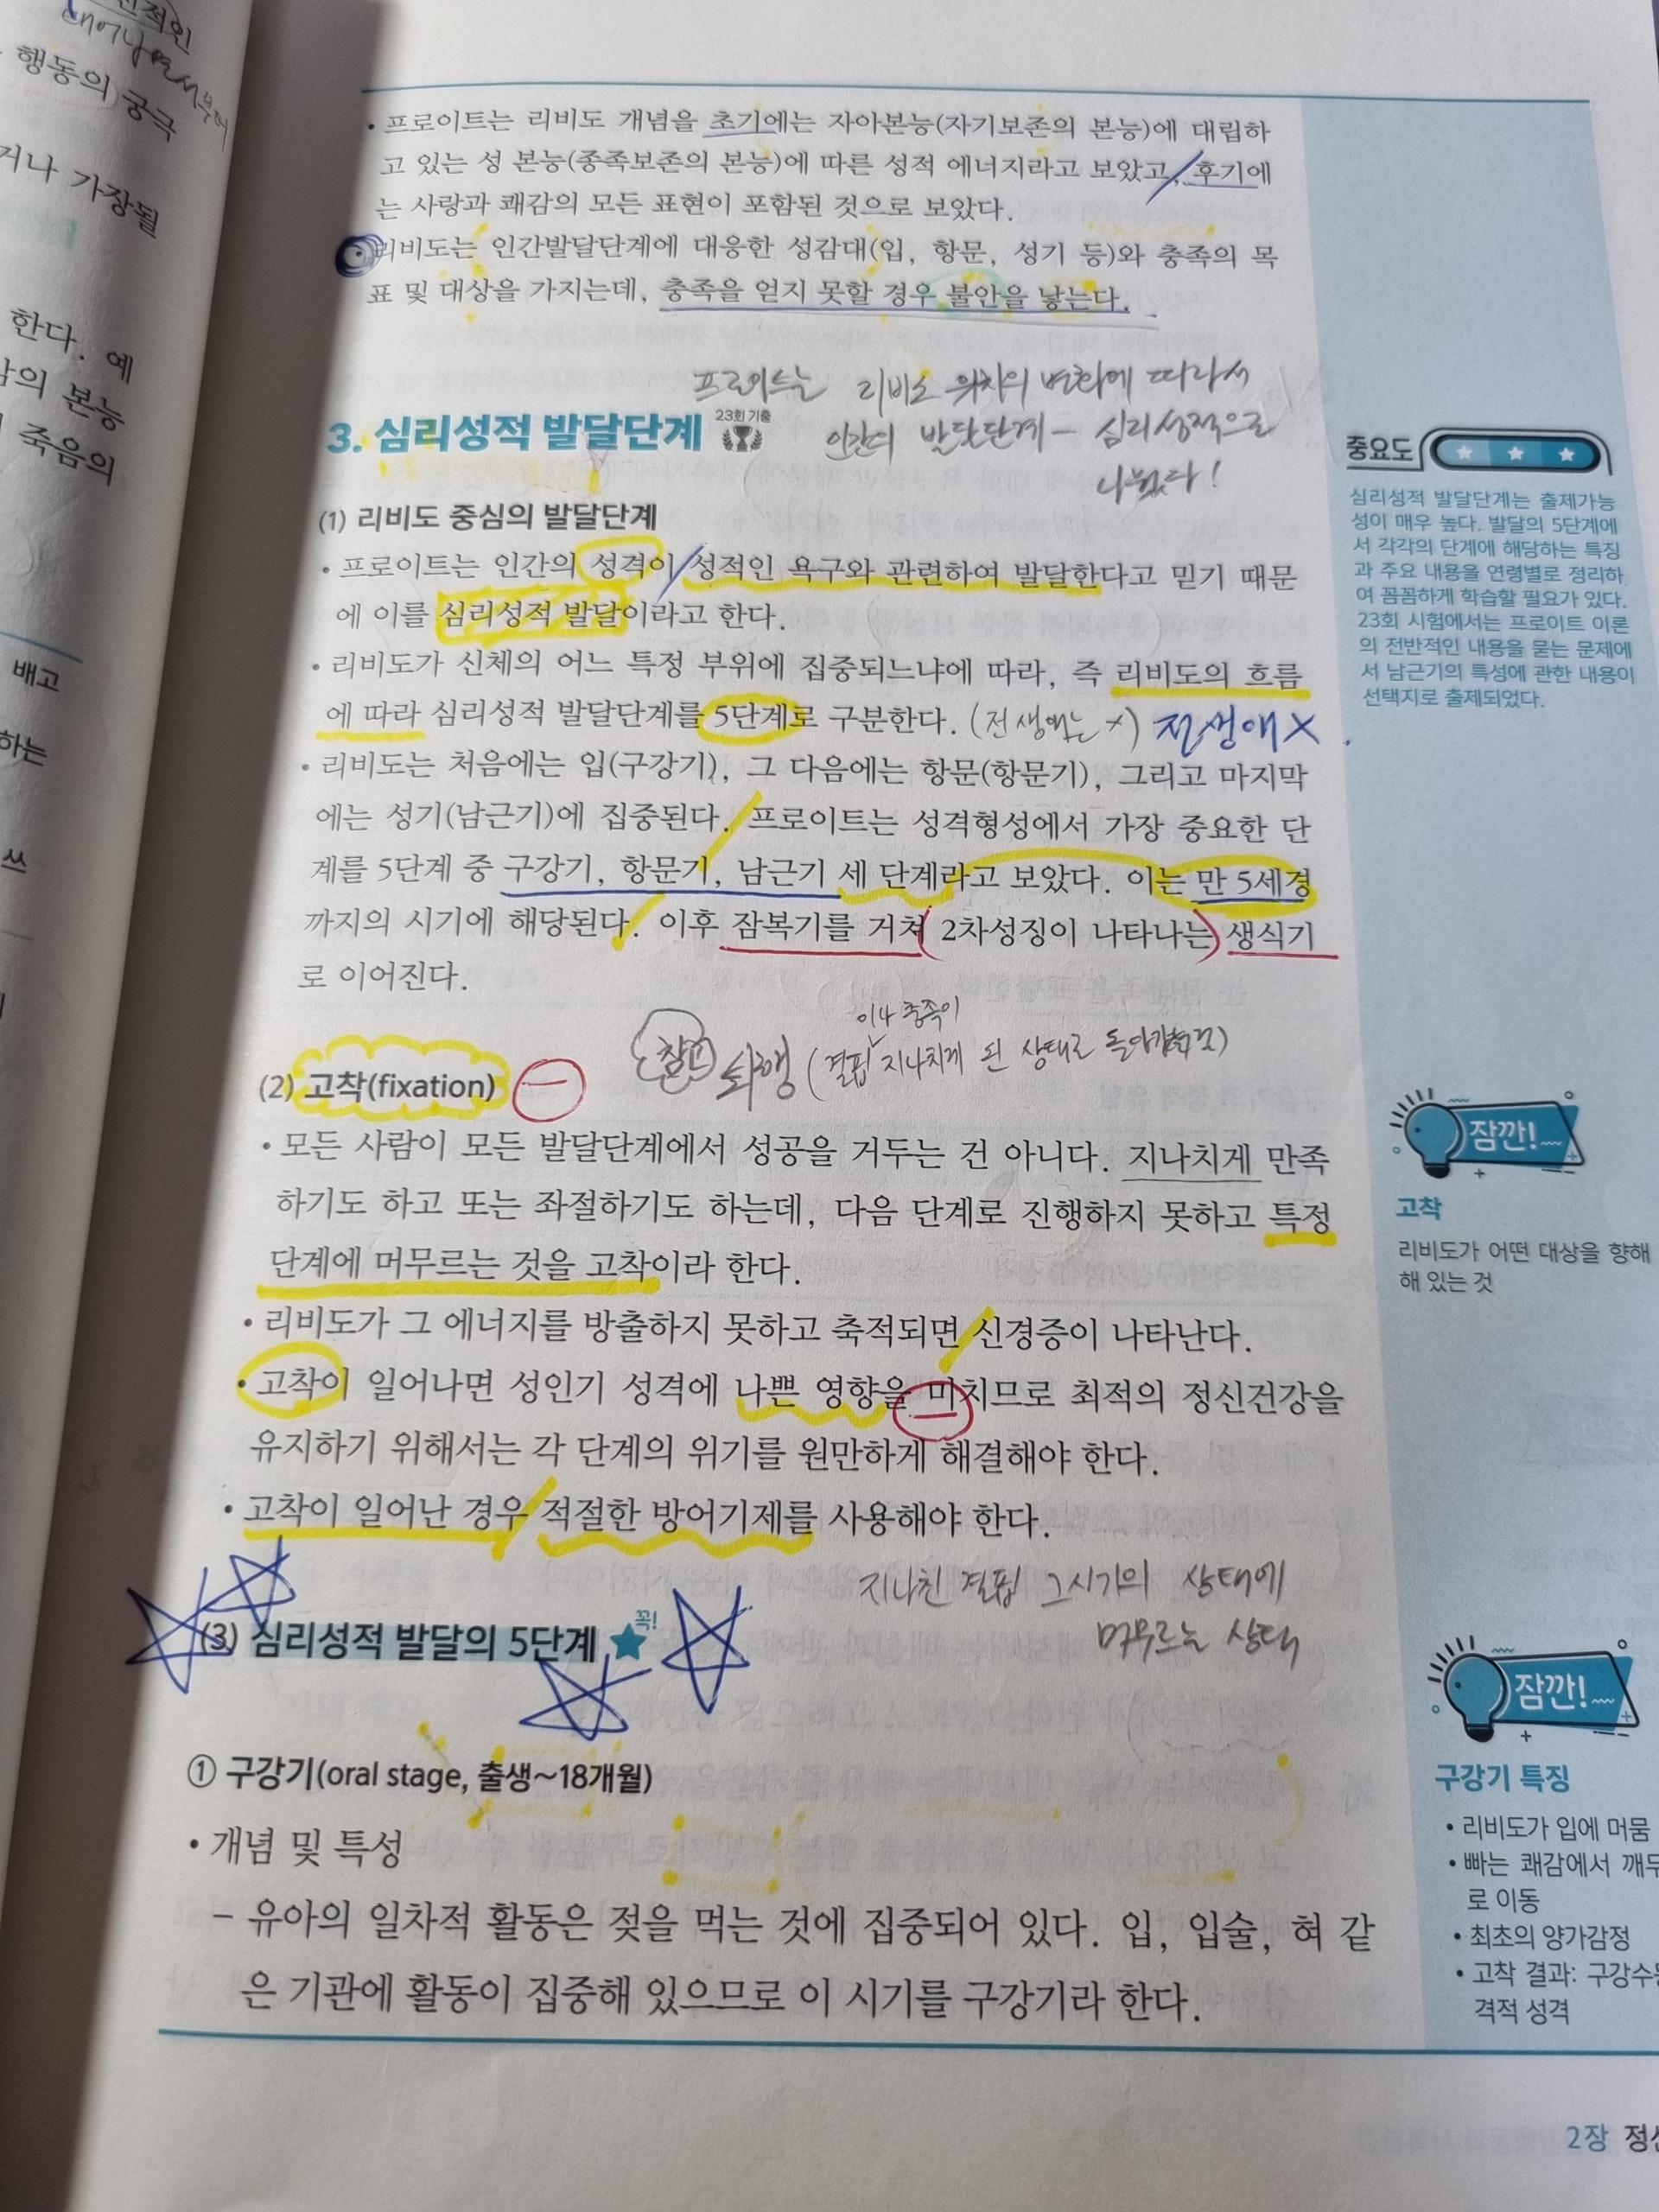 행동의 궁극
거나 가장될
한다. 예
의 본능
죽음의
배고
하는
쓰
• 프로이트는 리비도 개념을 초기에는 자아본능(자기보존의 본능)에 대립하
고 있는 성 본능(종족보존의 본능)에 따른 성적 에너지라고 보았고, 후기에
는 사랑과 쾌감의 모든 표현이 포함된 것으로 보았다.
리비도는 인간발달단계에 대응한 성감대(입, 항문, 성기 등)와 충족의 목
표 및 대상을 가지는데, 충족을 얻지 못할 경우 불안을 낳는다.
프로이트는 리비도 위치의 변화에 따라서
인간의 발달단계 - 심리성적으로
나눴다!
3. 심리성적 발달단계 23회 기출
(1) 리비도 중심의 발달단계
• 프로이트는 인간의 성격이 성적인 욕구와 관련하여 발달한다고 믿기 때문
에 이를 심리성적 발달이라고 한다.
• 리비도가 신체의 어느 특정 부위에 집중되느냐에 따라, 즉 리비도의 흐름
에 따라 심리성적 발달단계를 5단계로 구분한다. (전생애는 X) 전생애 X
• 리비도는 처음에는 입(구강기), 그 다음에는 항문(항문기), 그리고 마지막
에는 성기(남근기)에 집중된다. 프로이트는 성격형성에서 가장 중요한 단
계를 5단계 중 구강기, 항문기, 남근기 세 단계라고 보았다. 이는 만 5세경
까지의 시기에 해당된다. 이후 잠복기를 거쳐 (2차성징이 나타나는) 생식기
로 이어진다.
이나 충족이
참고 퇴행 (결핍 지나치게 된 상태로 돌아가는 것)
(2) 고착(fixation) −
• 모든 사람이 모든 발달단계에서 성공을 거두는 건 아니다. 지나치게 만족
하기도 하고 또는 좌절하기도 하는데, 다음 단계로 진행하지 못하고 특정
단계에 머무르는 것을 고착이라 한다.
• 리비도가 그 에너지를 방출하지 못하고 축적되면 신경증이 나타난다.
• 고착이 일어나면 성인기 성격에 나쁜 영향을 미치므로 최적의 정신건강을
유지하기 위해서는 각 단계의 위기를 원만하게 해결해야 한다.
• 고착이 일어난 경우 적절한 방어기제를 사용해야 한다.
지나친 결핍 그시기의 상태에
머무르는 상태
(3) 심리성적 발달의 5단계 꼭!
① 구강기(oral stage, 출생~18개월)
• 개념 및 특성
– 유아의 일차적 활동은 젖을 먹는 것에 집중되어 있다. 입, 입술, 혀 같
은 기관에 활동이 집중해 있으므로 이 시기를 구강기라 한다.
중요도
심리성적 발달단계는 출제가능
성이 매우 높다. 발달의 5단계에
서 각각의 단계에 해당하는 특징
과 주요 내용을 연령별로 정리하
여 꼼꼼하게 학습할 필요가 있다.
23회 시험에서는 프로이트 이론
의 전반적인 내용을 묻는 문제에
서 남근기의 특성에 관한 내용이
선택지로 출제되었다.
잠깐!
고착
리비도가 어떤 대상을 향해
해 있는 것
잠깐!
구강기 특징
• 리비도가 입에 머뭄
• 빠는 쾌감에서 깨무
로 이동
• 최초의 양가감정
• 고착 결과: 구강수동
격적 성격
2장 정신